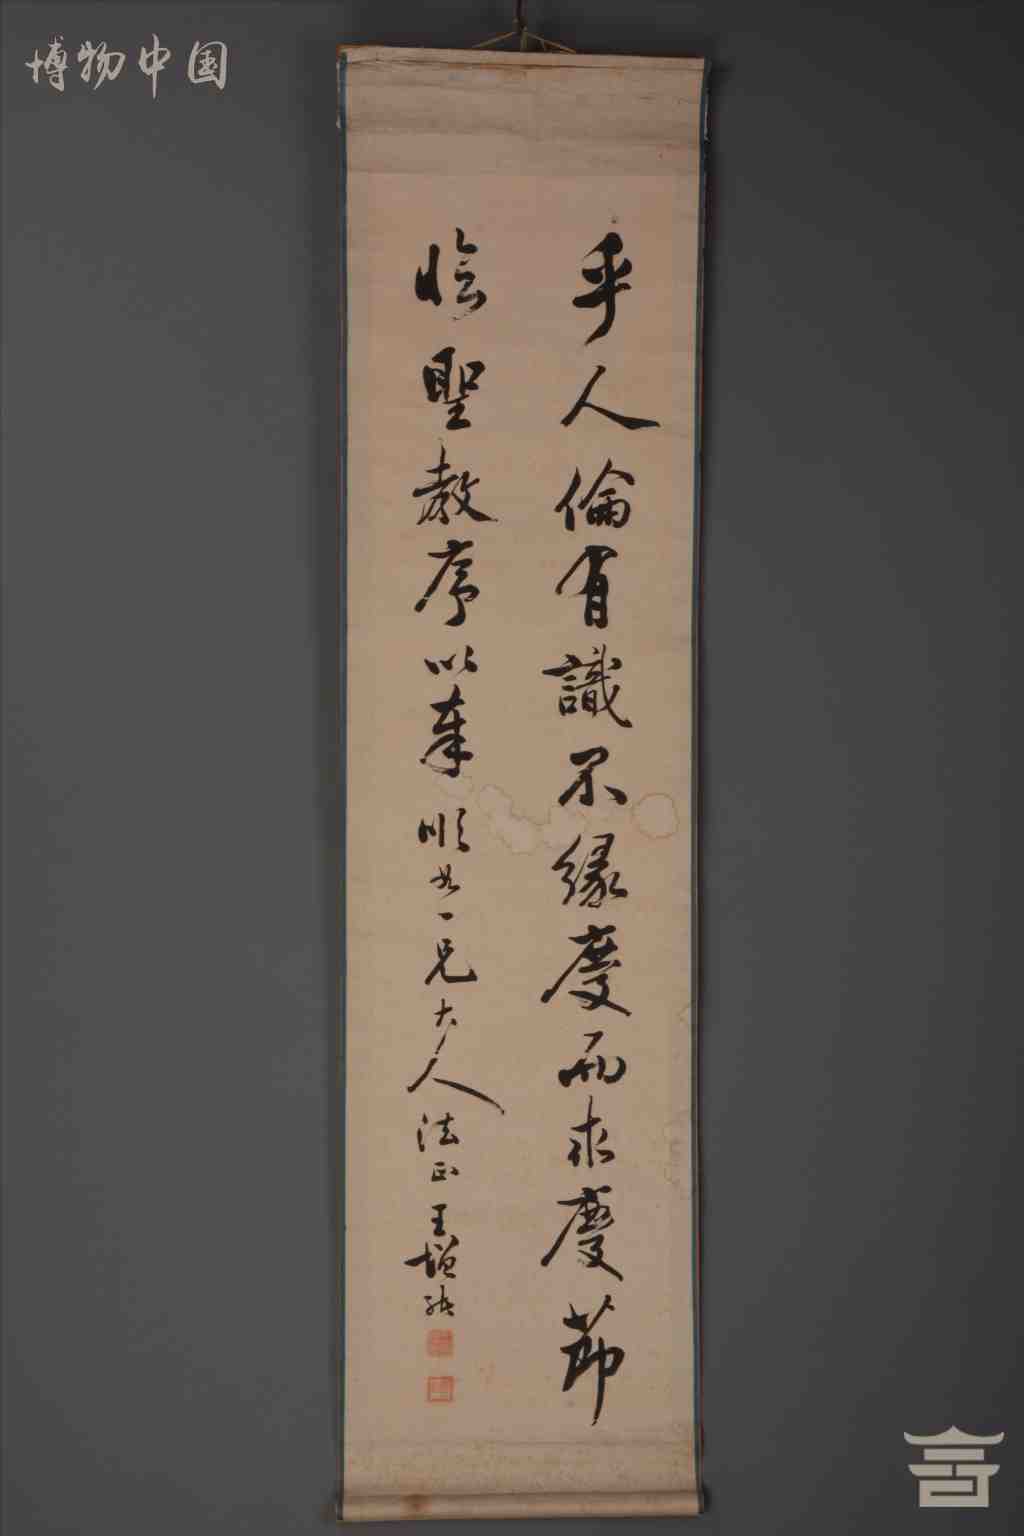 博物中国
乎人倫有識不緣慶而求慶節
臨聖教序以奉順如一兄大人法正王增